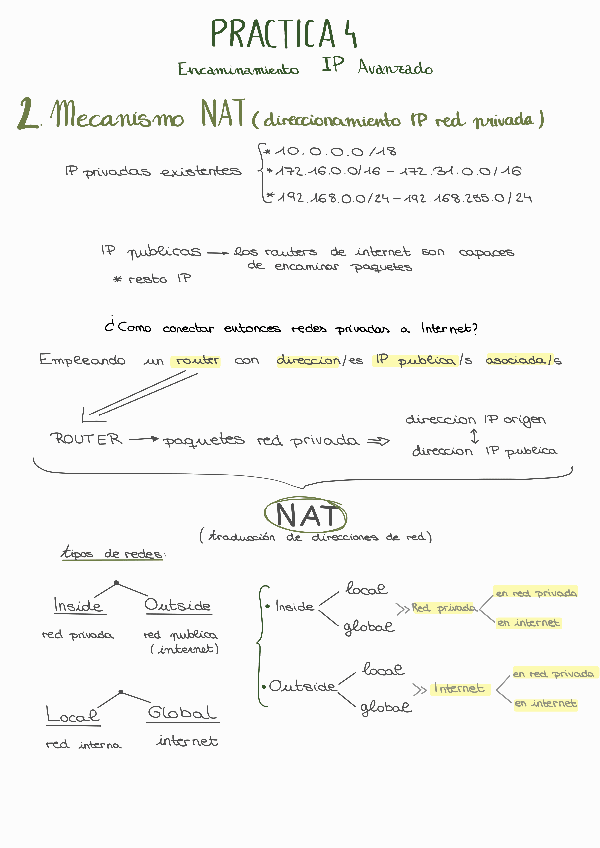 PRACTICA 4
Encaminamiento IP Avanzado
2. Mecanismo NAT (direccionamiento IP red privada)
* 10.0.0.0/18
IP privadas existentes * 172.16.0.0/16 - 172.31.0.0/16
* 192.168.0.0/24 - 192.168.255.0/24
IP publicas → los routers de internet son capaces
de encaminar paquetes
* resto IP
¿Como conectar entonces redes privadas a Internet?
Empleando un router con direccion/es IP publica/s asociada/s
direccion IP origen
ROUTER → paquetes red privada ⇒
↕
direccion IP publica
NAT
(traducción de direcciones de red)
tipos de redes:
Inside Outside
red privada red publica
(internet)
Local Global
red interna internet
• Inside local
global
>> Red privada en red privada
en internet
• Outside local
global
>> Internet en red privada
en internet